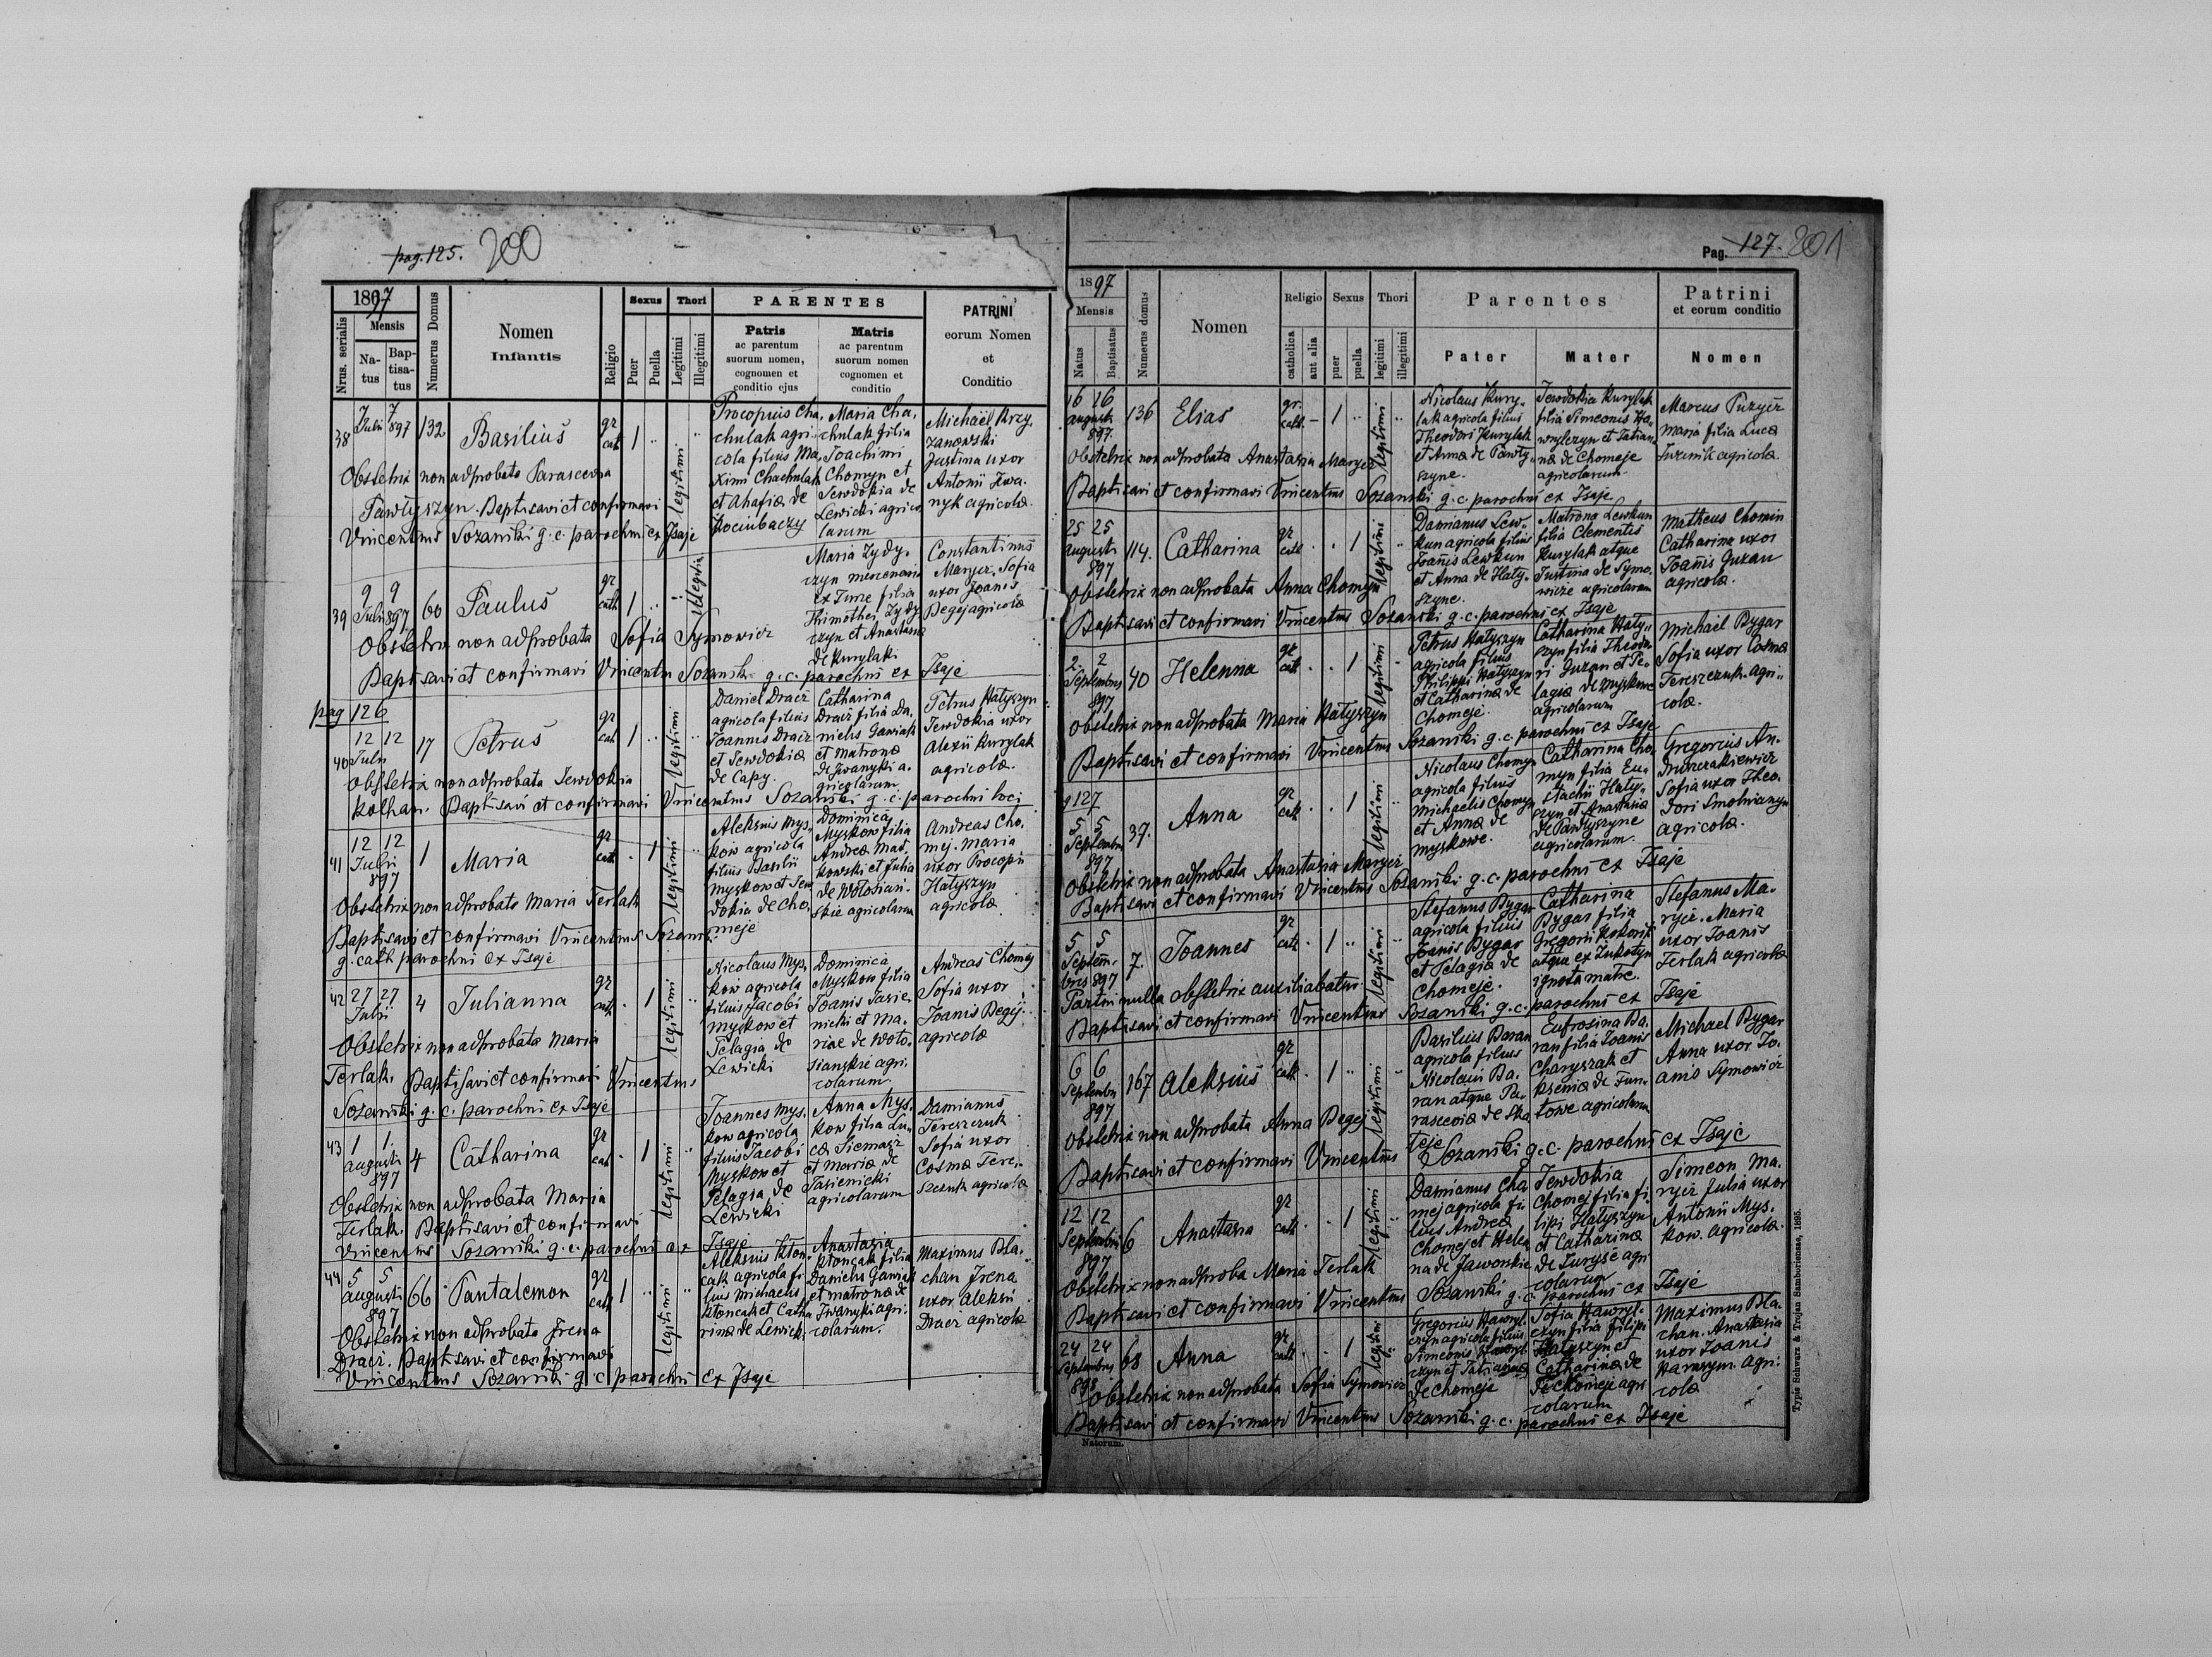 pag. 125. 200
1897
Nrus. serialis
Mensis
Na-
tus
Bap-
tisa-
tus
Numerus Domus
Nomen
Infantis
Religio
Sexus
Puer
Puella
Thori
Legitimi
Illegitimi
PARENTES
Patris
ac parentum
suorum nomen,
cognomen et
conditio ejus
Matris
ac parentum
suorum nomen
cognomen et
conditio
PATRINI
eorum Nomen
et
Conditio
38
Julii 7 897
132
Basilius
gr cath
1
legitimi
Procopius Cha,
chulak agri-
cola filius Ma,
ximi Chachulak
et Ahafia de
Kociubaczy
Maria Cha,
chulak filia
Joachimi
Chomyn et
Jewdokia de
Lewicki agrico
larum
Michael Krzy,
zanowski
Justina uxor
Antonii Iwa-
nyk agricola
Obstetrix non adprobata Parascewa
Pawłyszyn. Baptisavi et confirmavi
Vincentius Sozanski g. c. parochus ex Isaje
39
9 9
Julii 897
60
Paulus
gr cath
1
illegitimi
Maria Zydy-
czyn mercenaria
ex Turze filia
Thimothei Zydy
czyn et Anastasia
de Kurylaki
Constantinus
Maryez. Sofia
uxor Joanis
Degéj agricola
Obstetrix non adprobata Sofia Symowicz
Baptisavi et confirmavi Vincentius Sozanski g. c. parochus ex Isaje
pag 126
40
12 12
Julii
17
Petrus
gr cat
1
legitimi
Daniel Dracz
agricola filius
Joannis Dracz
et Jewdokia
de Capy.
Catharina
Dracz filia Da,
nielis Gawiak
et Matrona
de Iwanyki a-
gricolarum
Petrus Hatyszyn
Jewdokia uxor
Alexii Kurylak
agricola.
Obstetrix non adprobata Jewdokia
Kolhan. Baptisavi et confirmavi Vincentius Sozanski g. c. parochus loci
41
12 12
Julii
897
1
Maria
gr cat
1
legitimi
Aleksius Mys,
kow agricola
filius Basilii
Myskow et Jew
dokia de Cho,
meje
Dominica
Myskow filia
Andrea Mać
kowski et Julia
de Wołosian-
skie agricolarum
Andreas Cho,
mej. Maria
uxor Procopii
Hatyszyn
agricola
Obstetrix non adprobata Maria Terlak
Baptisavi et confirmavi Vincentius Sozanski
g. cath parochus ex Isaje
42
27 27
Julii
4
Julianna
gr cath
1
legitimi
Nicolaus Mys,
kow agricola
filius Jacobi
Myskow et
Pelagia de
Lewicki
Dominica
Myskow filia
Joanis Jasie,
nicki et Ma-
riae de Woło-
sianskie agri-
colarum
Andreas Chomej
Sofia uxor
Joanis Degéj.
agricola
Obstetrix non adprobata Maria
Terlak. Baptisavi et confirmavi Vincentius
Sozanski g. c. parochus ex Isaje
43
1 1
augusti
897
4
Catharina
gr cat
1
legitimi
Joannes Mys,
kow agricola
filius Jacobi
Myskow et
Pelagia de
Lewicki
Anna Mys,
kow filia Lu-
ca Siemasz
et Maria de
Jasienicki
agricolarum
Damianus
Tereszczuk
Sofia uxor
Cosma Tere,-
szczuk agricola
Obstetrix non adprobata Maria
Terlak. Baptisavi et confirmavi
Vincentius Sozanski g. c. parochus ex Isaje
44
5 5
augusti
897
66
Pantalemon
gr cath
1
legitimi
Aleksius Kton-
cak agricola fi-
lius Michaelis
Ktoncak et Catha
rina de Lewick,
Anastasia
Ktoncak filia
Danielis Gawiak
et Matrona de
Iwanyki agri-
colarum.
Maximus Bla-
chan Irena
uxor Aleksii
Dracz agricola
Obstetrix non adprobata Irena
Dracz. Baptisavi et confirmavi
Vincentius Sozanski g c parochus ex Isaje
Pag. 127. 201
1897
Mensis
Natus
Baptisatus
Numerus domus
Nomen
Religio
catholica
aut alia
Sexus
puer
puella
Thori
legitimi
illegitimi
Parentes
Pater
Mater
Patrini
et eorum conditio
Nomen
16 16
augusti
897
136
Elias
gr. cath
1
legitimi
Nicolaus Kury-
lak agricola filius
Theodori Kurylak
et Anna de Pawły-
szyne.
Jewdokia Kurylak
filia Simeonis Ha-
wrylczyn et Tatian-
na de Chomeje
agricolarum
Marcus Puzyer
Maria filia Luca
Iwanik agricola
Obstetrix non adprobata Anastasia Maryez
Baptisavi et confirmavi Vincentius Sozanski g. c. parochus ex Isaje
25 25
augusti
897
114.
Catharina
gr cath
1
legitimi
Damianus Lew-
kun agricola filius
Joanis Lewkun
et Anna de Haty-
szyne.
Matrona Lewkun
filia Clementis
Kurylak atque
Justina de Symo,
wicze agricolarum
Matheus Chomin
Catharina uxor
Joanis Guzan
agricola.
Obstetrix non adprobata Anna Chomyn
Baptisavi et confirmavi Vincentius Sozanski g. c. parochus ex Isaje
2 2
Septembris
897
40
Helenna
gr cath
1
legitimi
Petrus Hatyszyn
agricola filius
Philippi Hatyszyn
et Catharina de
Chomeje.
Catharina Haty-
szyn filia Theodo
ri Guzan et Pe-
lagia de Myskowe
agricolarum
Michael Bygar
Sofia uxor Cosma
Tereszczuk. Agri-
cola.
Obstetrix non adprobata Maria Hatyszyn
Baptisavi et confirmavi Vincentius Sozanski g. c. parochus ex Isaje
g 127
5 5
Septembris
897
37.
Anna
gr cath
1
legitimi
Nicolaus Chomyn
agricola filius
Michaelis Chomyn
et Anna de
Myskowe.
Catharina Cho,
myn filia Eu-
stachii Haty-
szyn et Anastasia
de Pawłyszyne
agricolarum.
Gregorius An-
druszczakiewicz
Sofia uxor Theo-
dori Smolniczyn
agricola.
Obstetrix non adprobata Anastasia Maryez
Baptisavi et confirmavi Vincentius Sozanski g. c. parochus ex Isaje
5 5
Septem-
bris 897
7.
Joannes
gr cath
1
legitimi
Stefanus Bygar
agricola filius
Joanis Bygar
et Pelagia de
Chomeje.
Catharina
Bygar filia
Gregorii
atque ex
ignota matre.
Stefanus Ma-
ryez. Maria
uxor Joanis
Terlak agricola
Partui nulla obstetrix auxiliabatur.
Baptisavi et confirmavi Vincentius Sozanski g. c. parochus ex Isaje
6 6
Septembris
897
167
Aleksius
gr cath
1
legitimi
Basilius Baran
agricola filius
Nicolaii Ba-
ran atque Pa-
rascevia de Ska
teje
Eufrosina Ba-
ran filia Joanis
Charyszak et
Ksenia de Fun-
towe agricolarum
Michael Bygar
Anna uxor Jo-
anis Symowicz
Obstetrix non adprobata Anna Degej
Baptisavi et confirmavi Vincentius Sozanski g. c. parochus ex Isaje
12 12
Septembris
897
6
Anastasia
gr cath
1
legitimi
Damianus Cho
mej agricola fi-
lius Andrea
Chomej et Hele
na de Jaworskie
Jewdokia
Chomej filia fi-
lipi Hatyszyn
et Catharina
de Juryse agri
colarum
Simeon Ma-
ryez Julia uxor
Antonii Mys-
kow. agricola.
Obstetrix non adproba Maria Terlak
Baptisavi et confirmavi Vincentius Sozanski g. c. parochus ex Isaje
24 24
Septembris
898
68
Anna
gr cath
1
legitimi
Gregorius Hawryl-
czyn agricola filius
Simeonis Hawryl-
czyn et Tatianna
de Chomeje
Sofia Hawryl-
czyn filia filipi
Hatyszyn et
Catharina de
de Chomeje agri
colarum
Maximus Bla-
chan. Anastasia
uxor Joanis
Hawrym. Agri-
cola
Obstetrix non adprobata Sofia Symowicz
Baptisavi et confirmavi Vincentius Sozanski g. c. parochus ex Isaje
Natorum.
Typis Schwarz & Trojan Samboriensae, 1895.